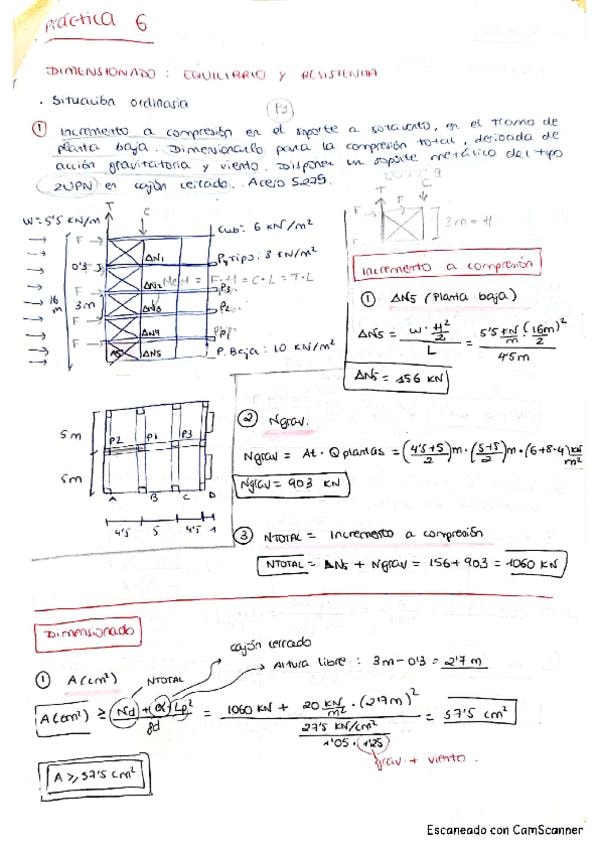 Práctica 6
DIMENSIONADO: EQUILIBRIO Y RESISTENCIA
. Situación ordinaria
P1
① Incremento a compresión en el soporte a sotavento, en el tramo de
planta baja. Dimensionarlo para la compresión total, derivada de
acción gravitatoria y viento. Disponer un soporte metálico del tipo
2UPN en cajón cerrado. Acero S.275.
W=5'5 KN/m
T
C
F
F
F
F
0'3
16 m
3m
ΔN1
ΔN2
ΔN3
ΔN4
ΔN5
F·H = C·L = T·L
Cub: 6 KN/m²
P. tipo: 8 KN/m²
P3
P2
P1
P. Baja: 10 KN/m²
T
C
F
F
3m = H
Incremento a compresión
① ΔN5 (Planta baja)
ΔN5 = W · H²/2 / L = 5'5 KN/m · (16m)²/2 / 4'5m
ΔN5 = 156 KN
5m
5m
P2
P1
P3
A
B
C
D
4'5
5
4'5
1
② Ngrav.
Ngrav = At · Q plantas = (4'5+5/2)m · (5+5/2)m · (6+8·4) KN/m²
Ngrav = 903 KN
③ NTOTAL = Incremento a compresión
NTOTAL = ΔN5 + Ngrav = 156 + 903 = 1060 KN
Dimensionado
① A(cm²)
NTOTAL
cajón cerrado
Altura libre: 3m - 0'3 = 2'7 m
A(cm²) ≥ Nd + α Lp² / fd = 1060 KN + 20 KN/m² · (2'7m)² / 27'5 KN/cm² / 1'05 · 1'25 = 57'5 cm²
grav + viento.
A ≥ 57'5 cm²
Escaneado con CamScanner